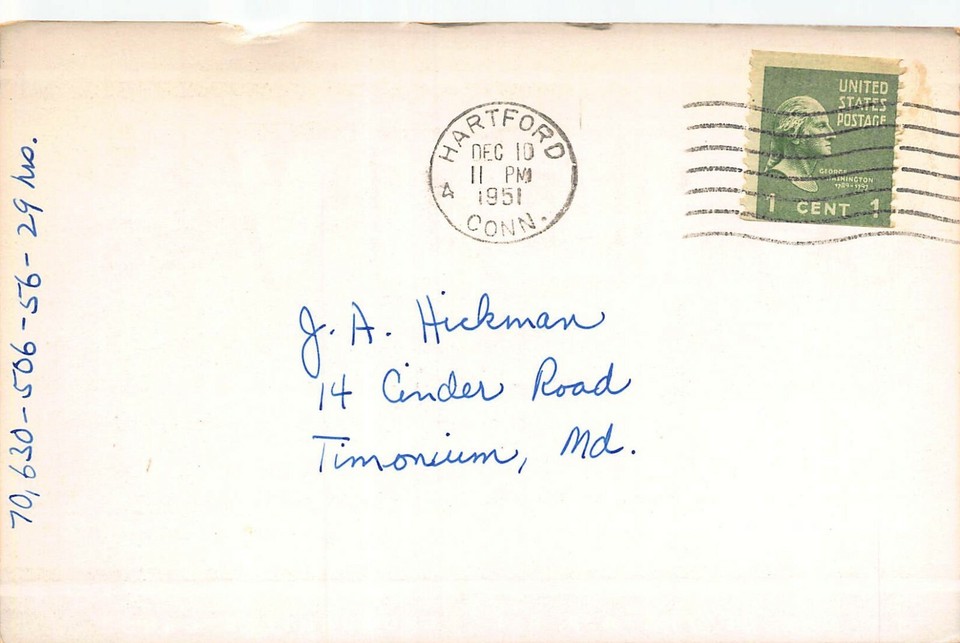 HARTFORD
DEC 10
11 PM
1951
4
CONN.
UNITED
STATES
POSTAGE
GEORGE
WASHINGTON
1789-1797
1 CENT 1
J. A. Hickman
14 Cinder Road
Timonium, Md.
70,630-506-56-29 hrs.